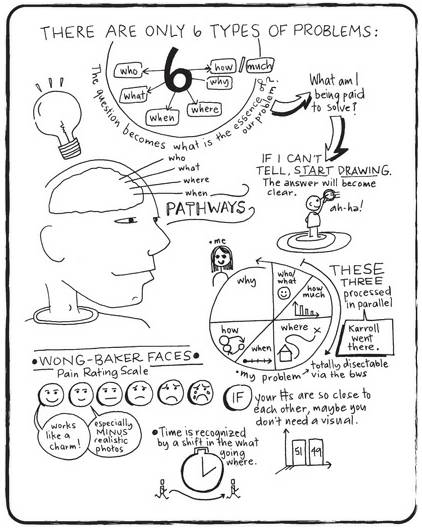 THERE ARE ONLY 6 TYPES OF PROBLEMS:
6
who
how / much
why
what
when
where
The question becomes what is the essence of our problem?
What am I
being paid
to solve?
IF I CAN'T
TELL, START DRAWING.
The answer will become
clear.
ah-ha!
who
what
where
when
PATHWAYS
• me
why
who/
what
how
much
how
when
where
x
THESE
THREE
processed
in parallel
Karroll
went
there.
• my problem → totally disectable
via the 6ws
• WONG-BAKER FACES •
Pain Rating Scale
works
like a
charm!
especially
MINUS
realistic
photos
IF your #s are so close to
each other, maybe you
don't need a visual.
51 49
• Time is recognized
by a shift in the what
going
where.